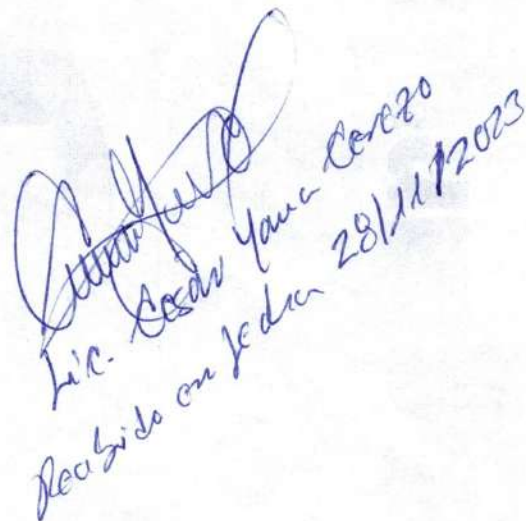 Lic. Cesar Yana Cerezo
Recibido en fecha 28/11/2023